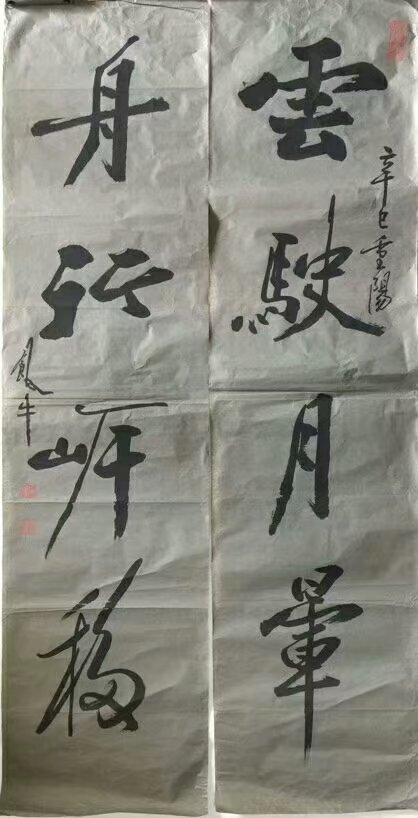 雲駛月暈
辛巳重陽
舟行岸移